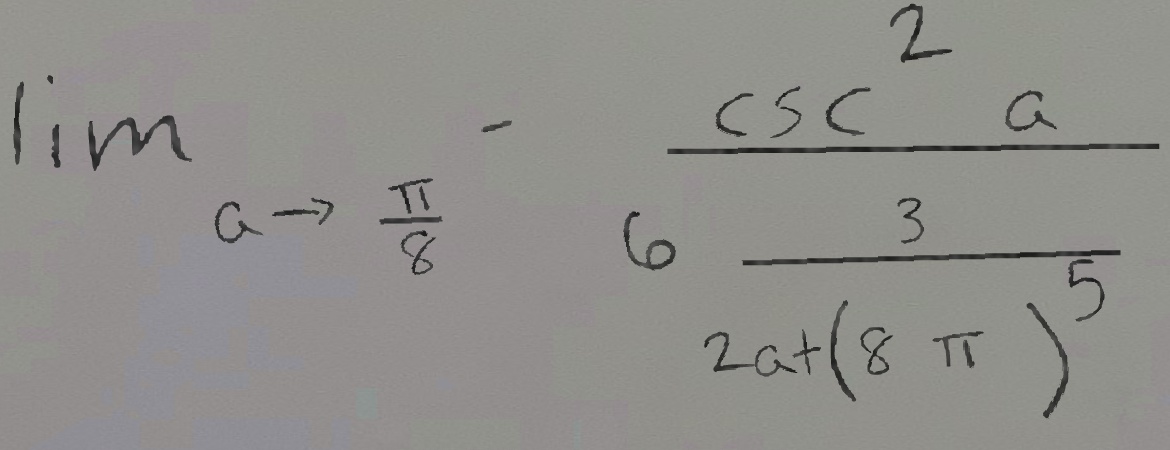 \lim_{a \to \frac{\pi}{8}} - \frac{\csc^2 a}{6 \frac{3}{2a + (8\pi)^5}}